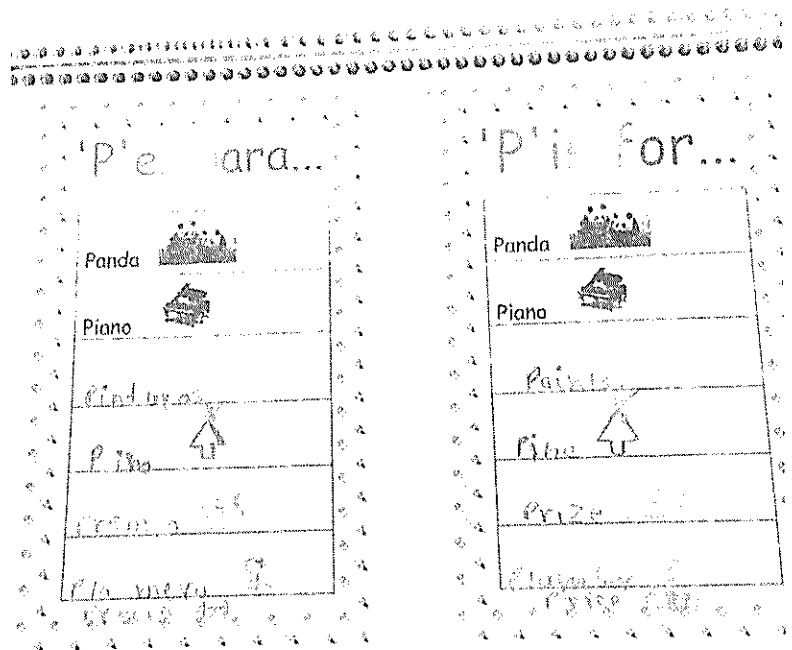 'P'e  ara...
Panda
Piano
Pinturas
Pino
Premio
Plomero
'P'is for...
Panda
Piano
Paints
Pine
Prize
Plumber